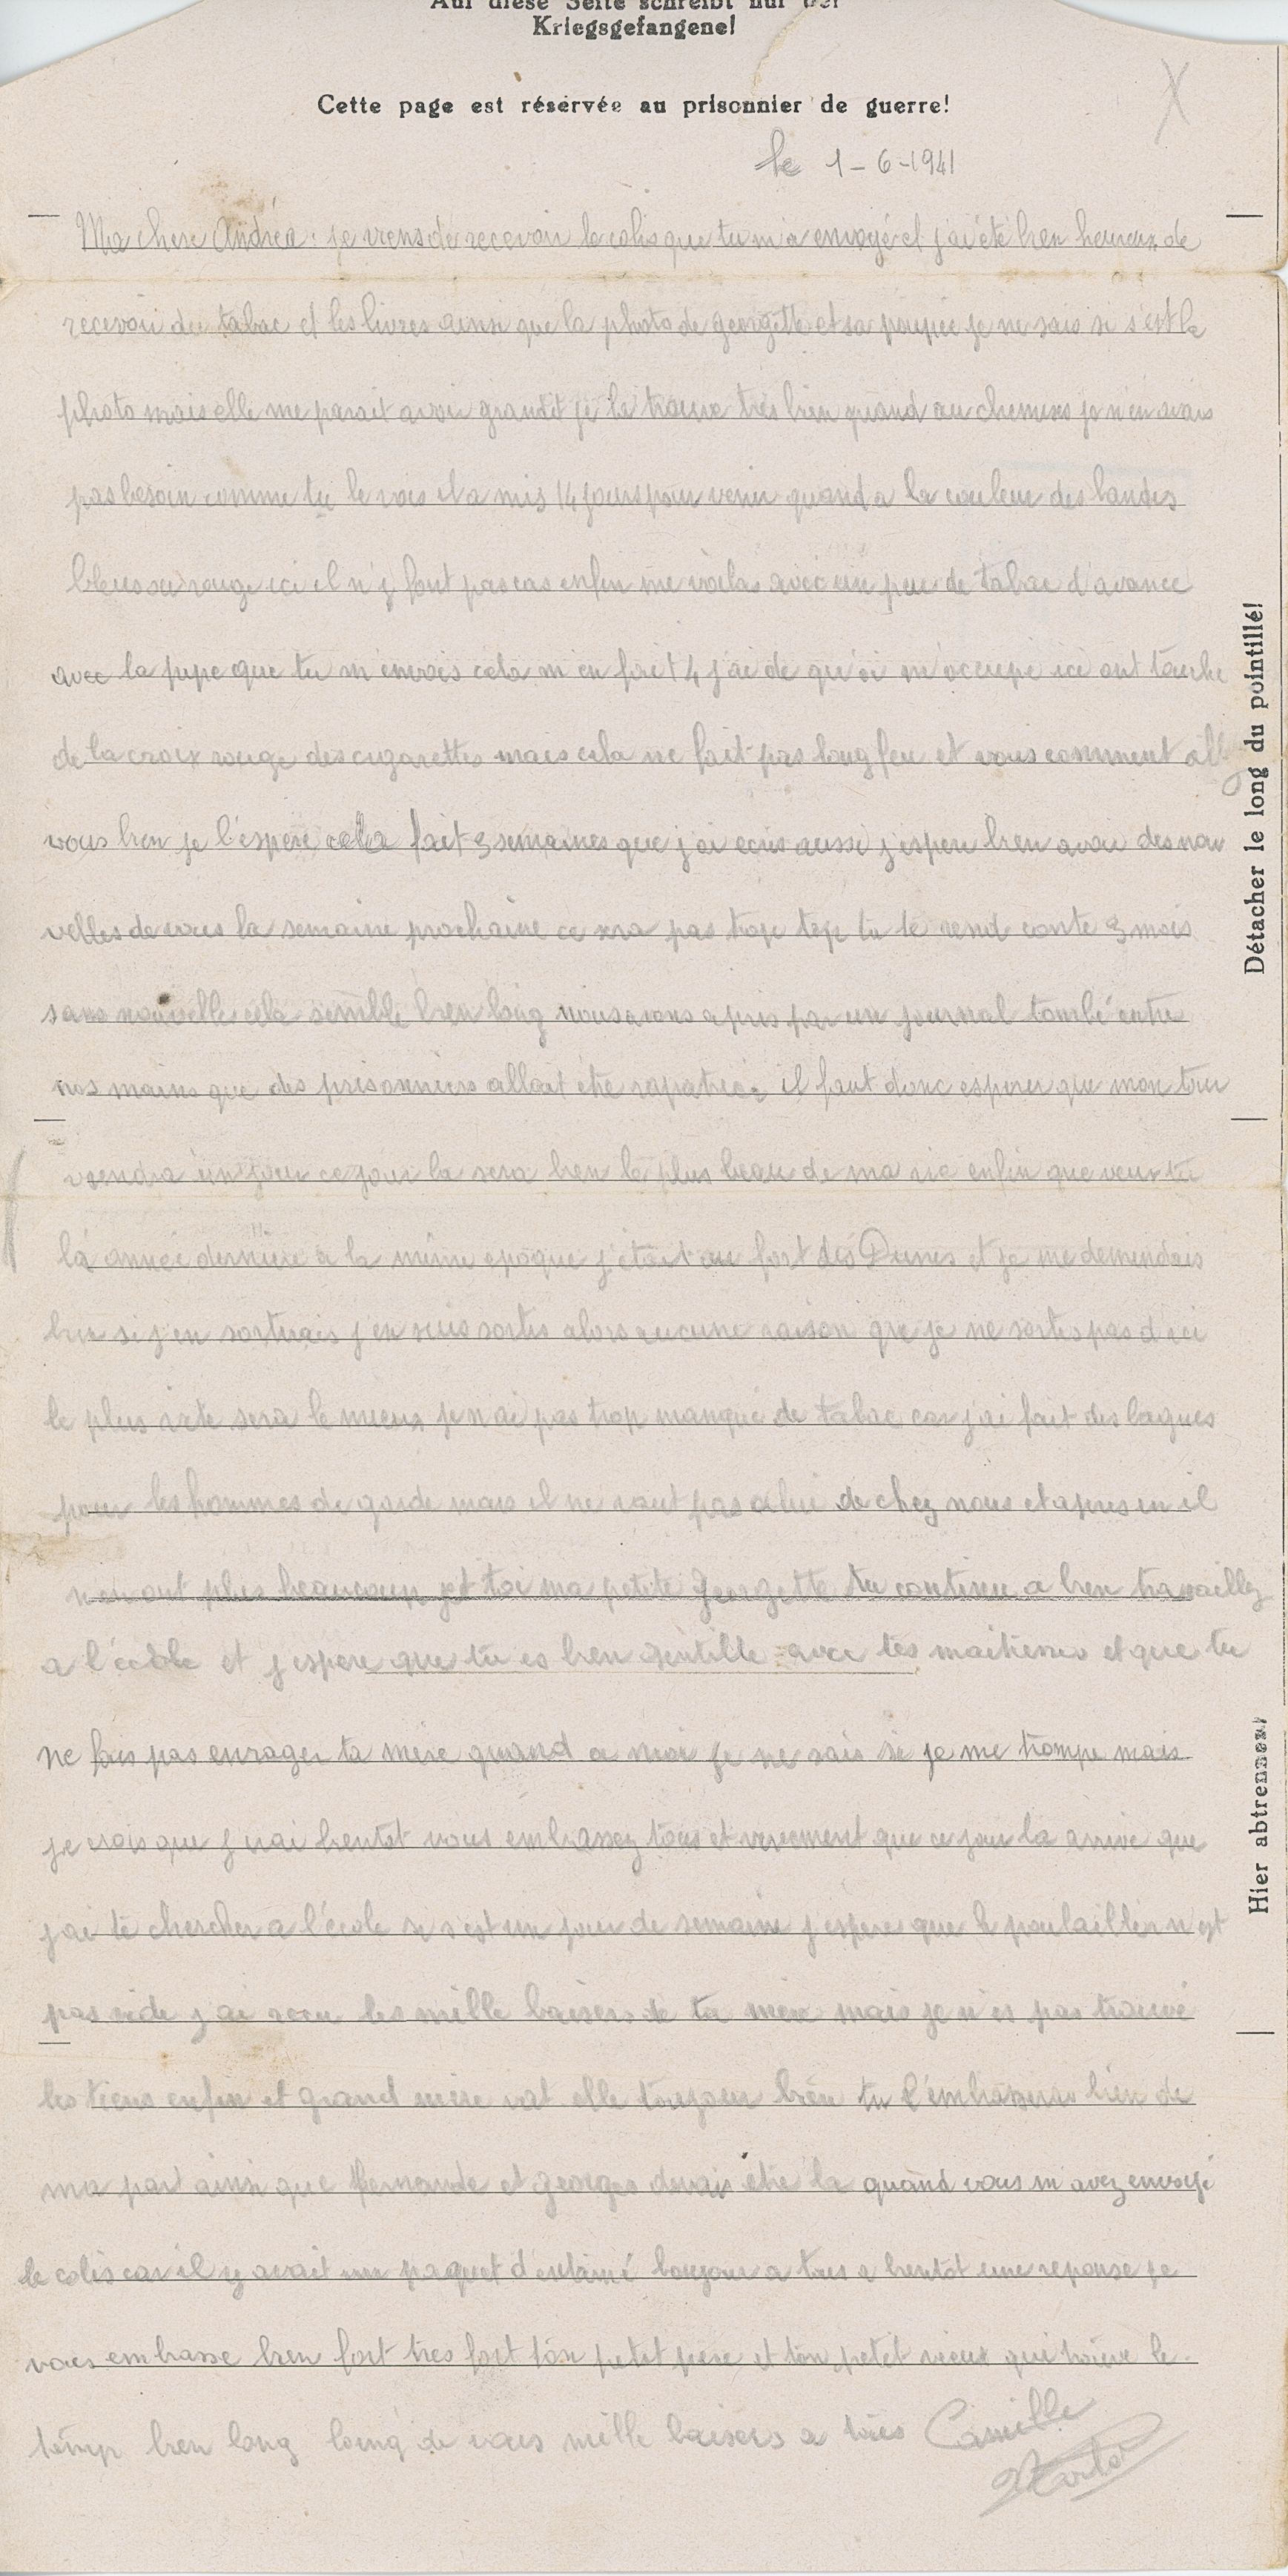 Auf diese Seite schreibt nur der
Kriegsgefangene!
Cette page est réservée au prisonnier de guerre!
le 1-6-1941
Ma chere Andréa. je viens de recevoir le colis que tu m'a envoyé et j'ai été bien heureux de
recevoir du tabac et les livres ainsi que la photo de georgette et sa poupée je ne sais si s'est la
photo mais elle me parait avoir grandit je la trouve très bien quand au chemises je n'en avais
pas besoin comme tu le vois il a mis 14 jours pour venir quand a la couleur des bandes
bleus ou rouge ici il n'y font pas cas enfin me voilas avec un peu de tabac d'avance
avec la pipe que tu m'envois cela m'en fait 4 j'ai de qu'oi m'occupé ici ont touche
de la croix rouge des cigarettes mais cela ne fait pas long feu et vous comment allez
vous bien je l'espere cela fait 3 semaines que j'ai ecris aussi j'espere bien avoir des nou
velles de vous la semaine prochaine ce sera pas trop top tu te rend conte 3 mois
sans nouvelle cela semble bien long nous avons apris par un journal tombé entre
nos mains que des prisonniers allait etre rapatriés il faut donc esperer que mon tour
viendra un jour ce jour la sera bien le plus beau de ma vie enfin que veux tu
la année dernière a la même epoque j'était au fort des Dunes et je me demendais
bien si j'en sortirais j'en suis sortis alors aucune raison que je ne sortes pas d'ici
le plus vite sera le mieux je n'ai pas trop manqué de tabac car j'ai fait des bagues
pour les hommes de garde mais il ne vaut pas celui de chez nous et apres en il
n'en ont plus beaucoup et toi ma petite georgette tu continu a bien travaillez
a l'école et j'espere que tu es bien gentille avec tes maitresses et que tu
ne fais pas enrager ta mère quand a moi je ne sais si je me trompe mais
je crois que j'irai bientot vous embrassez tous et vivement que ce jour la arrive que
j'ai te chercher a l'école si s'est un jour de semaine j'espere que le poulailler n'est
pas vide j'ai recu les mille baisers de ta mère mais je n'es pas trouvé
les tiens enfin et grand mère vat elle toujour bien tu l'embrassera bien de
ma part ainsi que fernande et georges devais etre la quand vous m'avez envoyé
le colis car il y avait un paquet d'entamé bonjour a tous a bientôt une reponse je
vous embrasse bien fort tres fort ton petit père et ton petit vieux qui trouve le
temp bien long loing de vous mille baisers a tous Camille
Détacher le long du pointillé!
Hier abtrennen!